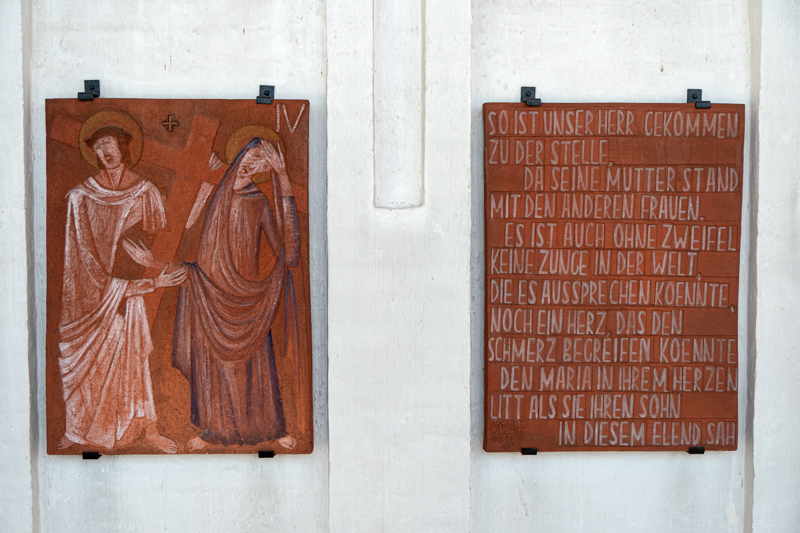 IV
SO IST UNSER HERR GEKOMMEN
ZU DER STELLE,
DA SEINE MUTTER STAND
MIT DEN ANDEREN FRAUEN.
ES IST AUCH OHNE ZWEIFEL
KEINE ZUNGE IN DER WELT,
DIE ES AUSSPRECHEN KOENNTE,
NOCH EIN HERZ, DAS DEN
SCHMERZ BEGREIFEN KOENNTE
DEN MARIA IN IHREM HERZEN
LITT ALS SIE IHREN SOHN
IN DIESEM ELEND SAH